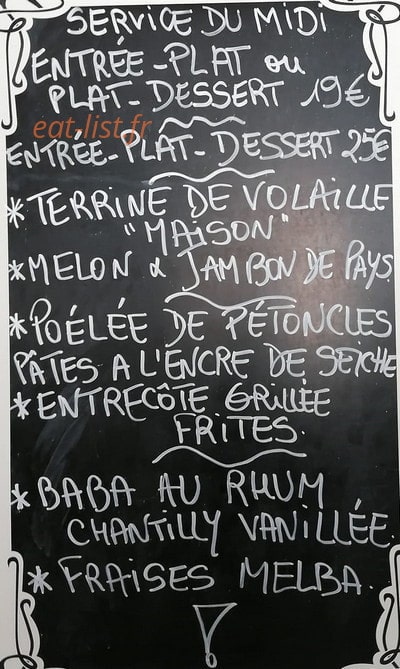 SERVICE DU MIDI
ENTRÉE-PLAT ou
PLAT-DESSERT 19€
eat-list.fr
ENTRÉE-PLAT-DESSERT 25€
* TERRINE DE VOLAILLE
"MAISON"
* MELON & JAMBON DE PAYS.
* POÉLÉE DE PÉTONCLES
PÂTES A L'ENCRE DE SEICHE
* ENTRECÔTE GRILLÉE
FRITES.
* BABA AU RHUM
CHANTILLY VANILLÉE.
* FRAISES MELBA.